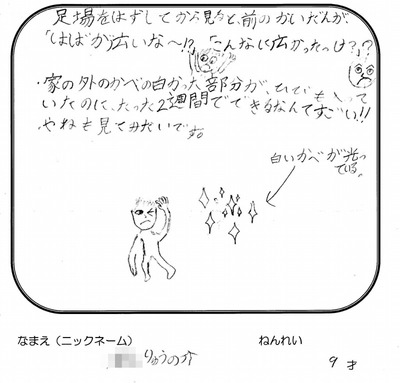 足場をはずしてから見ると、前のかいだんが、
「はばが広いな〜!?」「こんなに広かったっけ?」?
・家の外のかべの白かった部分が、ひび
いたのに、たった2週間でできるなんてすごい!!
やねも見てみたいです。
白いかべが光っ
ている。
なまえ（ニックネーム）
りゅうの介
ねんれい
9才